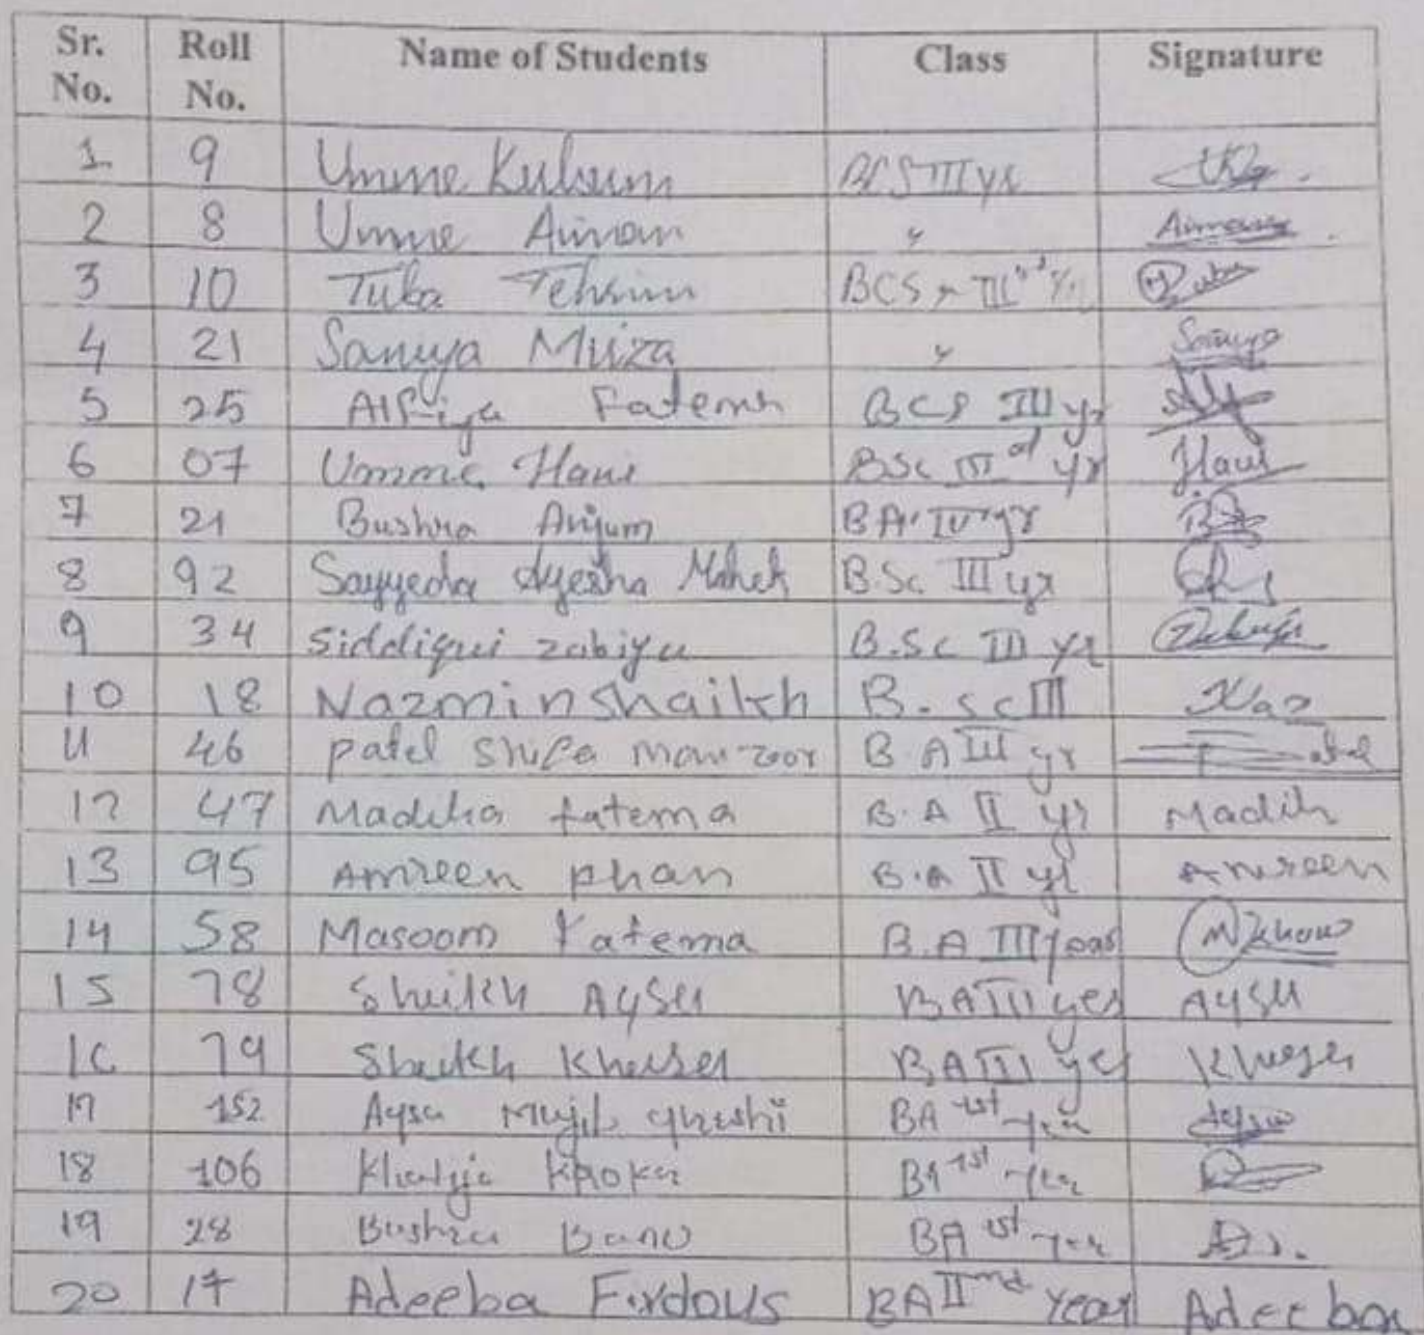 Sr. No. Roll No. Name of Students Class Signature
1 9 Umme Kulsum BCS III yr
2 8 Umme Aiman " Aiman
3 10 Tuba Tehsim BCS III Tuba
4 21 Saniya Mirza " Saniya
5 25 Alfiya Fatema BCS III yr
6 07 Umme Hani BSc III rd yr Hani
7 21 Bushra Anjum BA yr
8 92 Sayyeda Ayesha Mahek B.Sc III yr
9 34 Siddiqui zabiya B.Sc III yr
10 18 Nazmin Shaikh B.sc III Naz
11 46 patel Shifa manzoor B.A III yr
12 47 Madiha fatema B.A II yr Madih
13 95 Amreen B.A II yr Amreen
14 58 Masoom Fatema B.A III year M khan
15 78 Sheikh Aysu BA III Aysu
16 79 Sheikh BA III
17 152 Aysa BA 1st year
18 106 BA 1st year
19 28 Bushra Bano BA 1st year
20 17 Adeeba Firdous BA IInd Year Adeeba